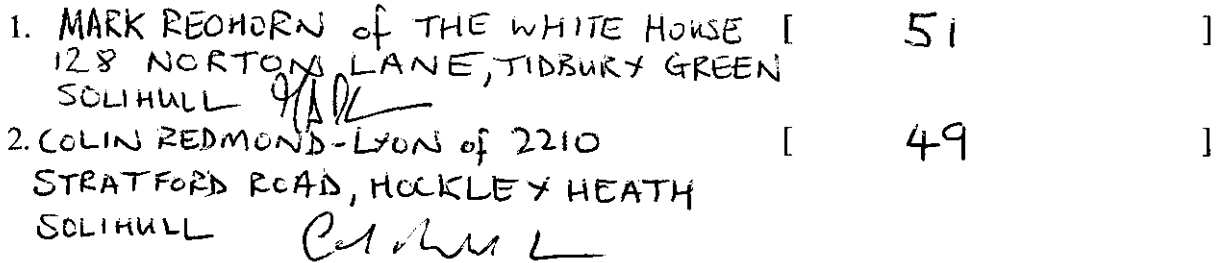 1. MARK REOHORN of THE WHITE HOUSE [ 51 ]
128 NORTON LANE, TIDBURY GREEN
SOLIHULL
2. COLIN REDMOND-LYON of 2210 [ 49 ]
STRATFORD ROAD, HOCKLEY HEATH
SOLIHULL